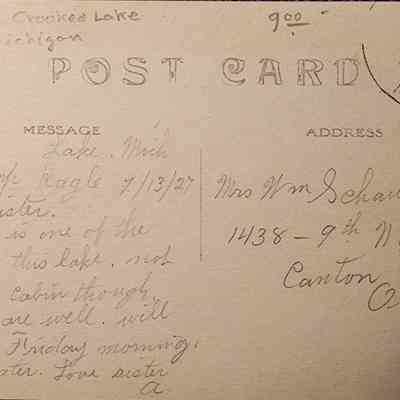 Crooked Lake
Michigan
9.00
POST CARD
MESSAGE
ADDRESS
Lake. Mich
Eagle 7/13/27
ister.
is one of the
this lake. not
cabin though.
are well. will
Friday morning.
ster. Love sister
A.
Mrs Wm Schau
1438 - 9th N
Canton
O